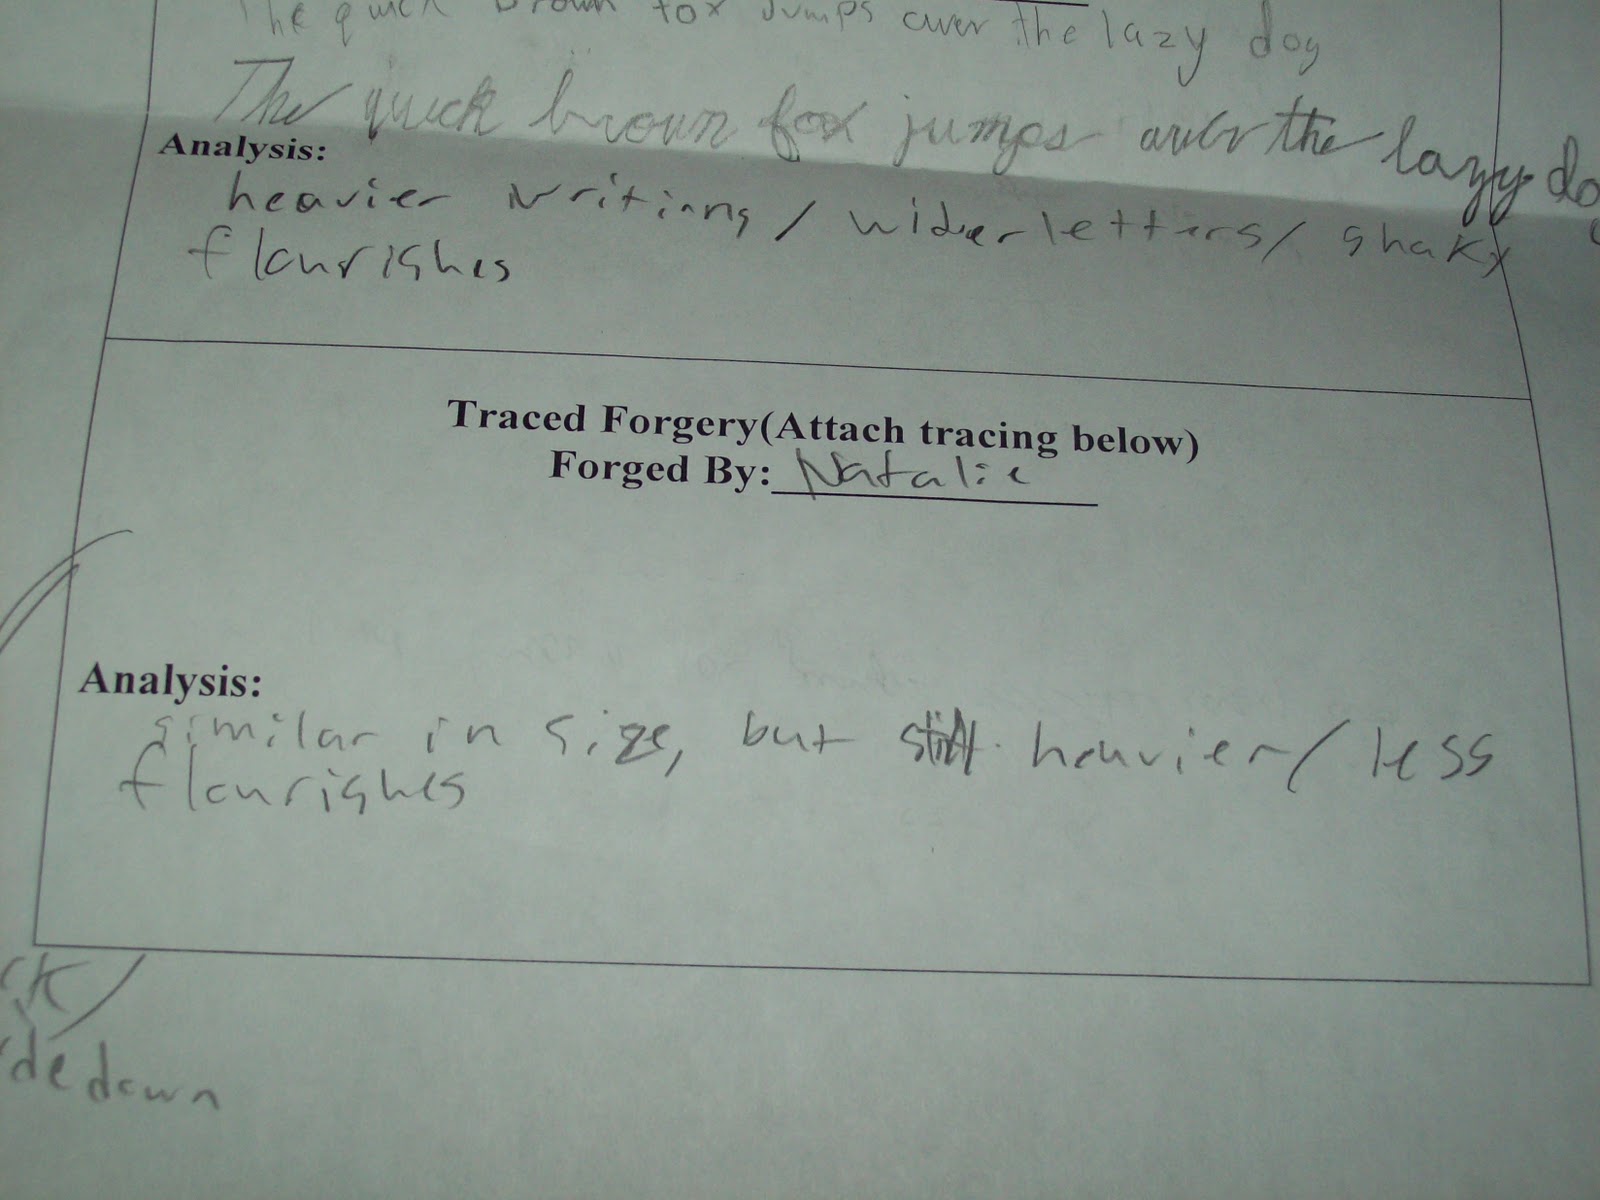 The quick brown fox jumps over the lazy dog
The quick brown fox jumps over the lazy dog
Analysis:
heavier writing / wider letters / shaky
flourishes
Traced Forgery(Attach tracing below)
Forged By: Natalie
Analysis:
similar in size, but still heavier / less
flourishes
de down